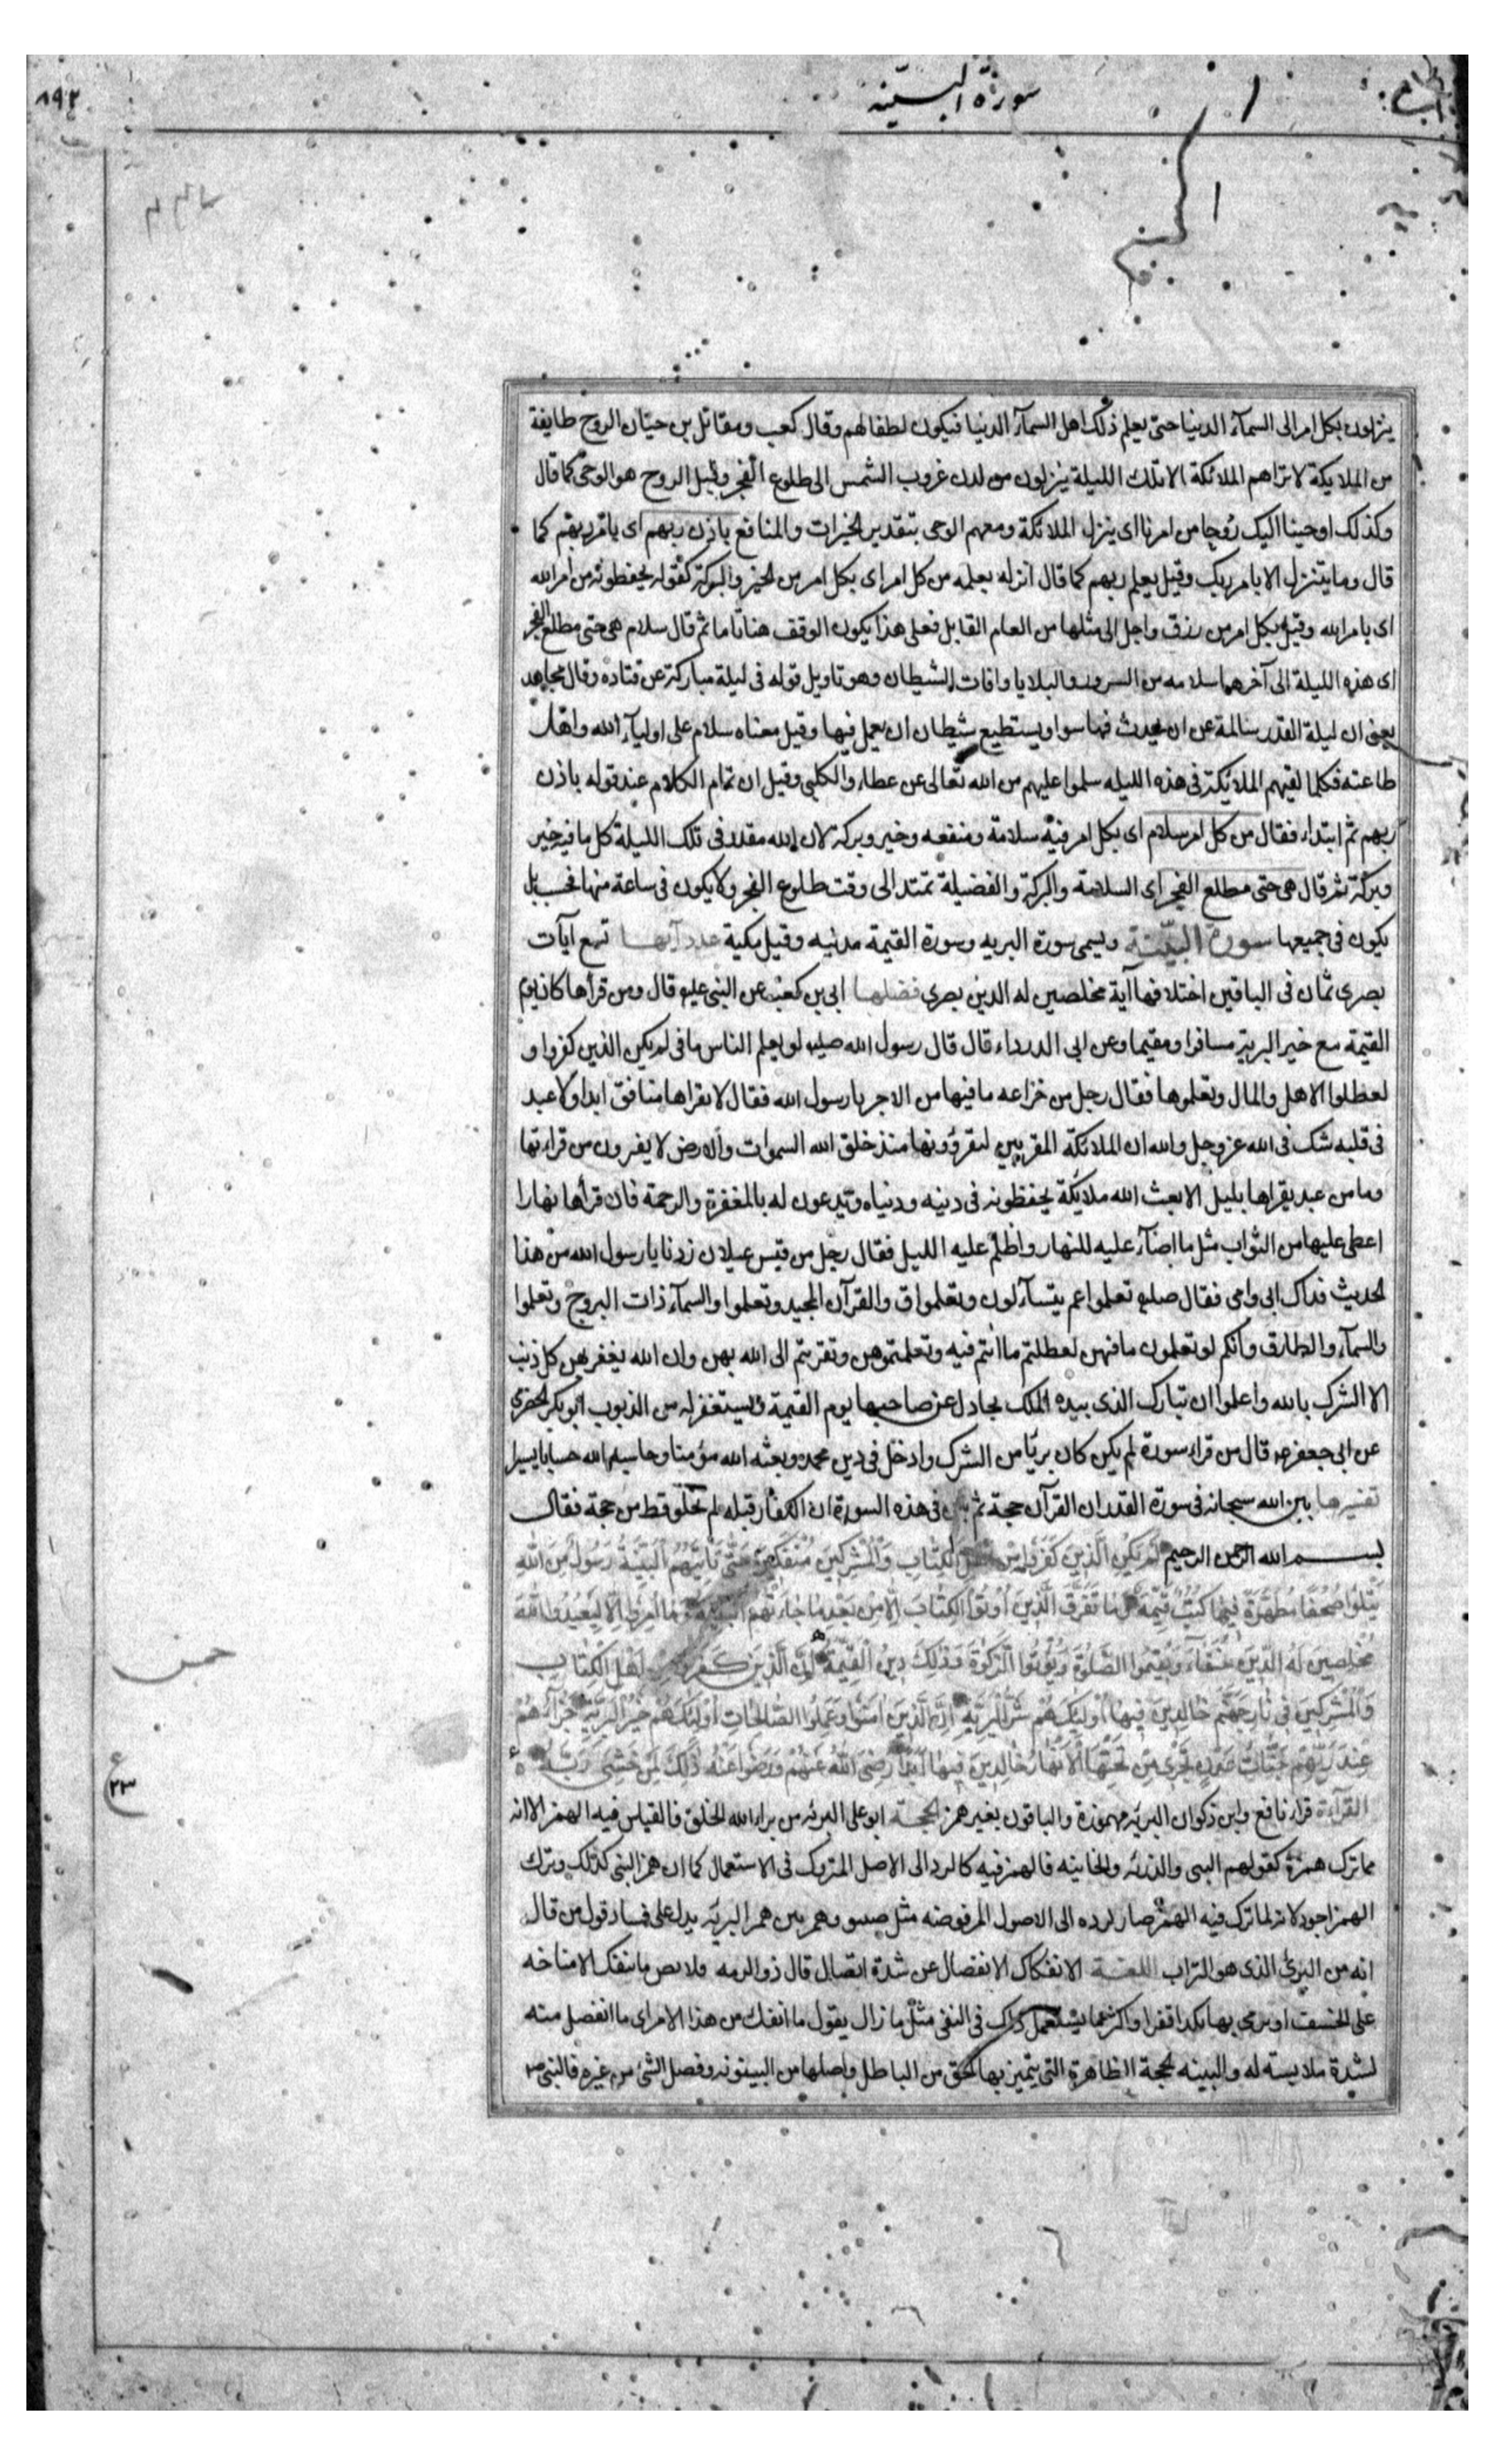 سورة البينة
ينزلون بكل امر الى السمآء الدنيا حتى يعلم ذلك اهل السمآء الدنيا فيكون لطفا لهم وقال كعب ومقاتل بن حيان الروح طايفة
من الملايكة لا تراهم الملائكة الا تلك الليلة ينزلون من لدن غروب الشمس الى طلوع الفجر وقيل الروح هو الوحي كما قال
وكذلك اوحينا اليك روحا من امرنا اى ينزل الملائكة ومعهم الوحى بتقدير الخيرات والمنافع باذن ربهم اى بامر ربهم كما
قال وما يتنزل الا بامر ربك وقيل بعلم ربهم كما قال انزله بعلمه من كل امر اى بكل امر من الخير والبركة كقوله يحفظونه من امر الله
اى بامر الله وقيل بكل امر من رزق واجل الى مثلها من العام القابل فعلى هذا يكون الوقف هنا تاما ثم قال سلام هى حتى مطلع الفجر
اى هذه الليلة الى آخرها سلامه من السرور والبلايا وافات الشيطان وهو تاويل قوله فى ليلة مباركة عن قتاده وقال مجاهد
يعنى ان ليلة القدر سالمة عن ان يحدث فيها سوا ويستطيع شيطان ان يعمل فيها وقيل معناه سلام على اوليآء الله واهل
طاعته فكلما لقيهم الملائكة فى هذه الليله سلموا عليهم من الله تعالى عن عطاء والكلبى وقيل ان تمام الكلام عند قوله باذن
ربهم ثم ابتداء فقال من كل امر سلام اى بكل امر فيه سلامة ومنفعه وخير وبركة لان الله مقدر فى تلك الليلة كل ما فيه خير
وبركة ثم قال هى حتى مطلع الفجر اى السلامة والبركة والفضيلة تمتد الى وقت طلوع الفجر ولا يكون فى ساعة منها فحسب بل
يكون فى جميعها سورة البينة ويسمى سورة البريه وسورة القيمة مدنيه وقيل مكية عدد آيها تسع آيات
بصرى ثمان فى الباقين اختلافها آية مخلصين له الدين بصرى فضلها ابى بن كعب عن النبى عليه قال ومن قرأها كان يوم
القيمة مع خير البرية مسافرا ومقيما وعن ابى الدرداء قال قال رسول الله صليه لو يعلم الناس ما فى لم يكن الذين كفروا و
لعطلوا الاهل والمال وتعلموها فقال رجل من خزاعه ما فيها من الاجر يا رسول الله فقال لا يقراها منافق ابدا ولا عبد
فى قلبه شك فى الله عز وجل والله ان الملائكة المقربين ليقرؤونها منذ خلق الله السموات والارض لا يفترون من قراءتها
وما من عبد يقراها بليل الا بعث الله ملايكة يحفظونه فى دينه ودنياه ويدعون له بالمغفرة والرحمة فان قرأها نهارا
اعطى عليها من الثواب مثل ما اضآء عليه النهار واظلم عليه الليل فقال رجل من قيس عيلان زدنا يا رسول الله من هذا
الحديث فداك ابى وامى فقال صليه تعلموا عم يتسآءلون وتعلموا ق والقرآن المجيد وتعلموا والسمآء ذات البروج وتعلموا
والسمآء والطارق وانكم لو تعلمون ما فيهن لعطلتم ما انتم فيه وتعلمتموهن وتقربتم الى الله بهن وان الله يغفر بهن كل ذنب
الا الشرك بالله واعلموا ان تبارك الذى بيده الملك يجادل عن صاحبها يوم القيمة ويستغفر له من الذنوب ابو بكر الحضرمى
عن ابى جعفر قال من قراء سورة لم يكن كان بريا من الشرك وادخل فى دين محمد وبعثه الله مؤمنا وحاسبه الله حسابا يسيرا
تفسيرها بين الله سبحانه فى سورة القدر ان القرآن حجة ثم بين فى هذه السورة ان الكفار قبله لم تخلو قط من حجة فقال
بسم الله الرحمن الرحيم لَمْ يَكُنِ الَّذِينَ كَفَرُوا مِنْ اَهْلِ الْكِتَابِ وَالْمُشْرِكِينَ مُنْفَكِّينَ حَتَّى تَأْتِيَهُمُ الْبَيِّنَةُ رَسُولٌ مِنَ اللهِ
يَتْلُوا صُحُفًا مُطَهَّرَةً فِيهَا كُتُبٌ قَيِّمَةٌ وَمَا تَفَرَّقَ الَّذِينَ اُوتُوا الْكِتَابَ اِلَّا مِنْ بَعْدِ مَا جَاءَتْهُمُ الْبَيِّنَةُ وَمَا اُمِرُوا اِلَّا لِيَعْبُدُوا اللهَ
مُخْلِصِينَ لَهُ الدِّينَ حُنَفَاءَ وَيُقِيمُوا الصَّلٰوةَ وَيُؤْتُوا الزَّكٰوةَ وَذٰلِكَ دِينُ الْقَيِّمَةِ اِنَّ الَّذِينَ كَفَرُوا مِنْ اَهْلِ الْكِتَابِ
وَالْمُشْرِكِينَ فِى نَارِ جَهَنَّمَ خَالِدِينَ فِيهَا اُولٰئِكَ هُمْ شَرُّ الْبَرِيَّةِ اِنَّ الَّذِينَ اٰمَنُوا وَعَمِلُوا الصَّالِحَاتِ اُولٰئِكَ هُمْ خَيْرُ الْبَرِيَّةِ جَزَاؤُهُمْ
عِنْدَ رَبِّهِمْ جَنَّاتُ عَدْنٍ تَجْرِى مِنْ تَحْتِهَا الْاَنْهَارُ خَالِدِينَ فِيهَا اَبَدًا رَضِىَ اللهُ عَنْهُمْ وَرَضُوا عَنْهُ ذٰلِكَ لِمَنْ خَشِىَ رَبَّهُ
القرآءة قراء نافع وابن ذكوان البريه مهموزة والباقون بغير همز الحجة ابو على البرئه من براء الله الخلق فالقياس فيه الهمز الا انه
مما ترك همزة كقولهم النبى والذريه والخابيه فالهمز فيه كالرد الى الاصل المتروك فى الاستعمال كما ان همز النبى كذلك وترك
الهمز اجود لانه لما ترك فيه الهمز صار لرده الى الاصول المرفوضه مثل وهمز من همز البريه يدل على فساد قول من قال
انه من البرى الذى هو التراب اللغة الانفكاك الانفصال عن شدة اتصال قال ذو الرمه قلايص ما تنفك الا مناخه
على الخسف او نرمى بها بلدا قفرا واكثر ما يستعمل ذلك فى النفى مثل ما زال يقول ما انفك من هذا الامر اى ما انفصل منه
لشدة ملابسته له والبينه الحجة الظاهرة التى يتميز بها الحق من الباطل واصلها من البينونه وفصل الشئ من غيره فالنبى